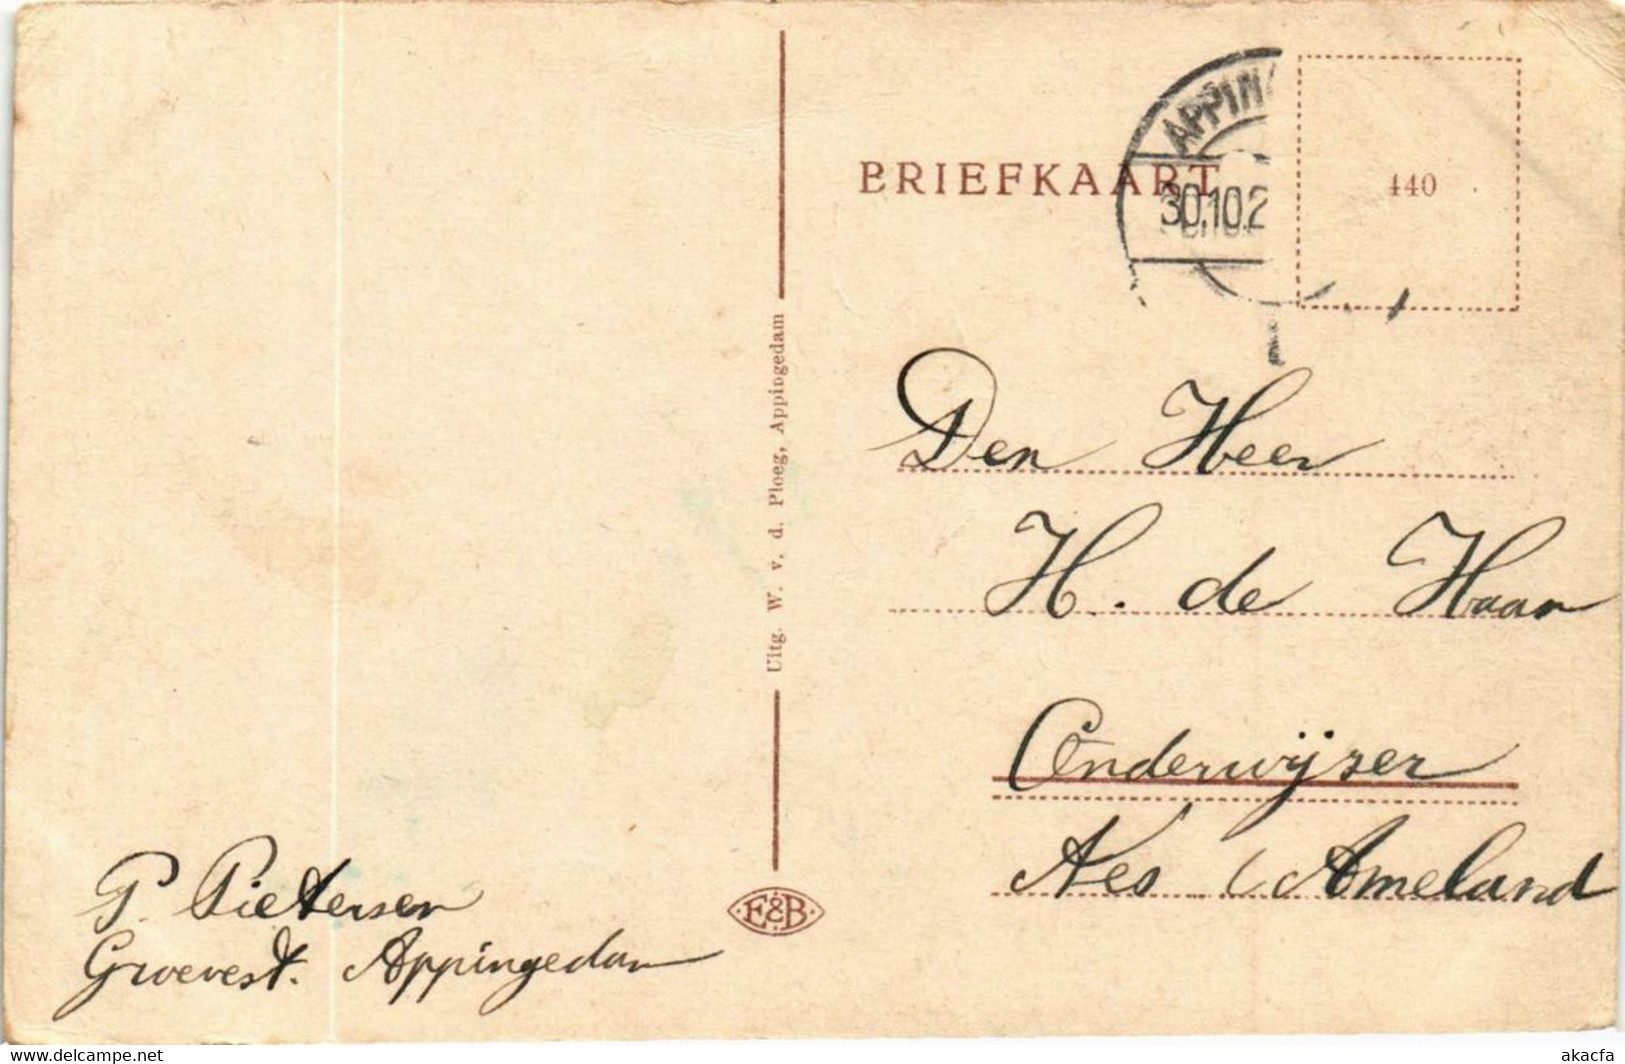 BRIEFKAART
APPIN
30.10.2
440
Den Heer
H. de Haan
Onderwijzer
Nes Ameland
Uitg. W. v. d. Ploeg, Appingedam
P. Pietersen
Groevest. Appingedam
F. & B.
www.delcampe.net
akacfa